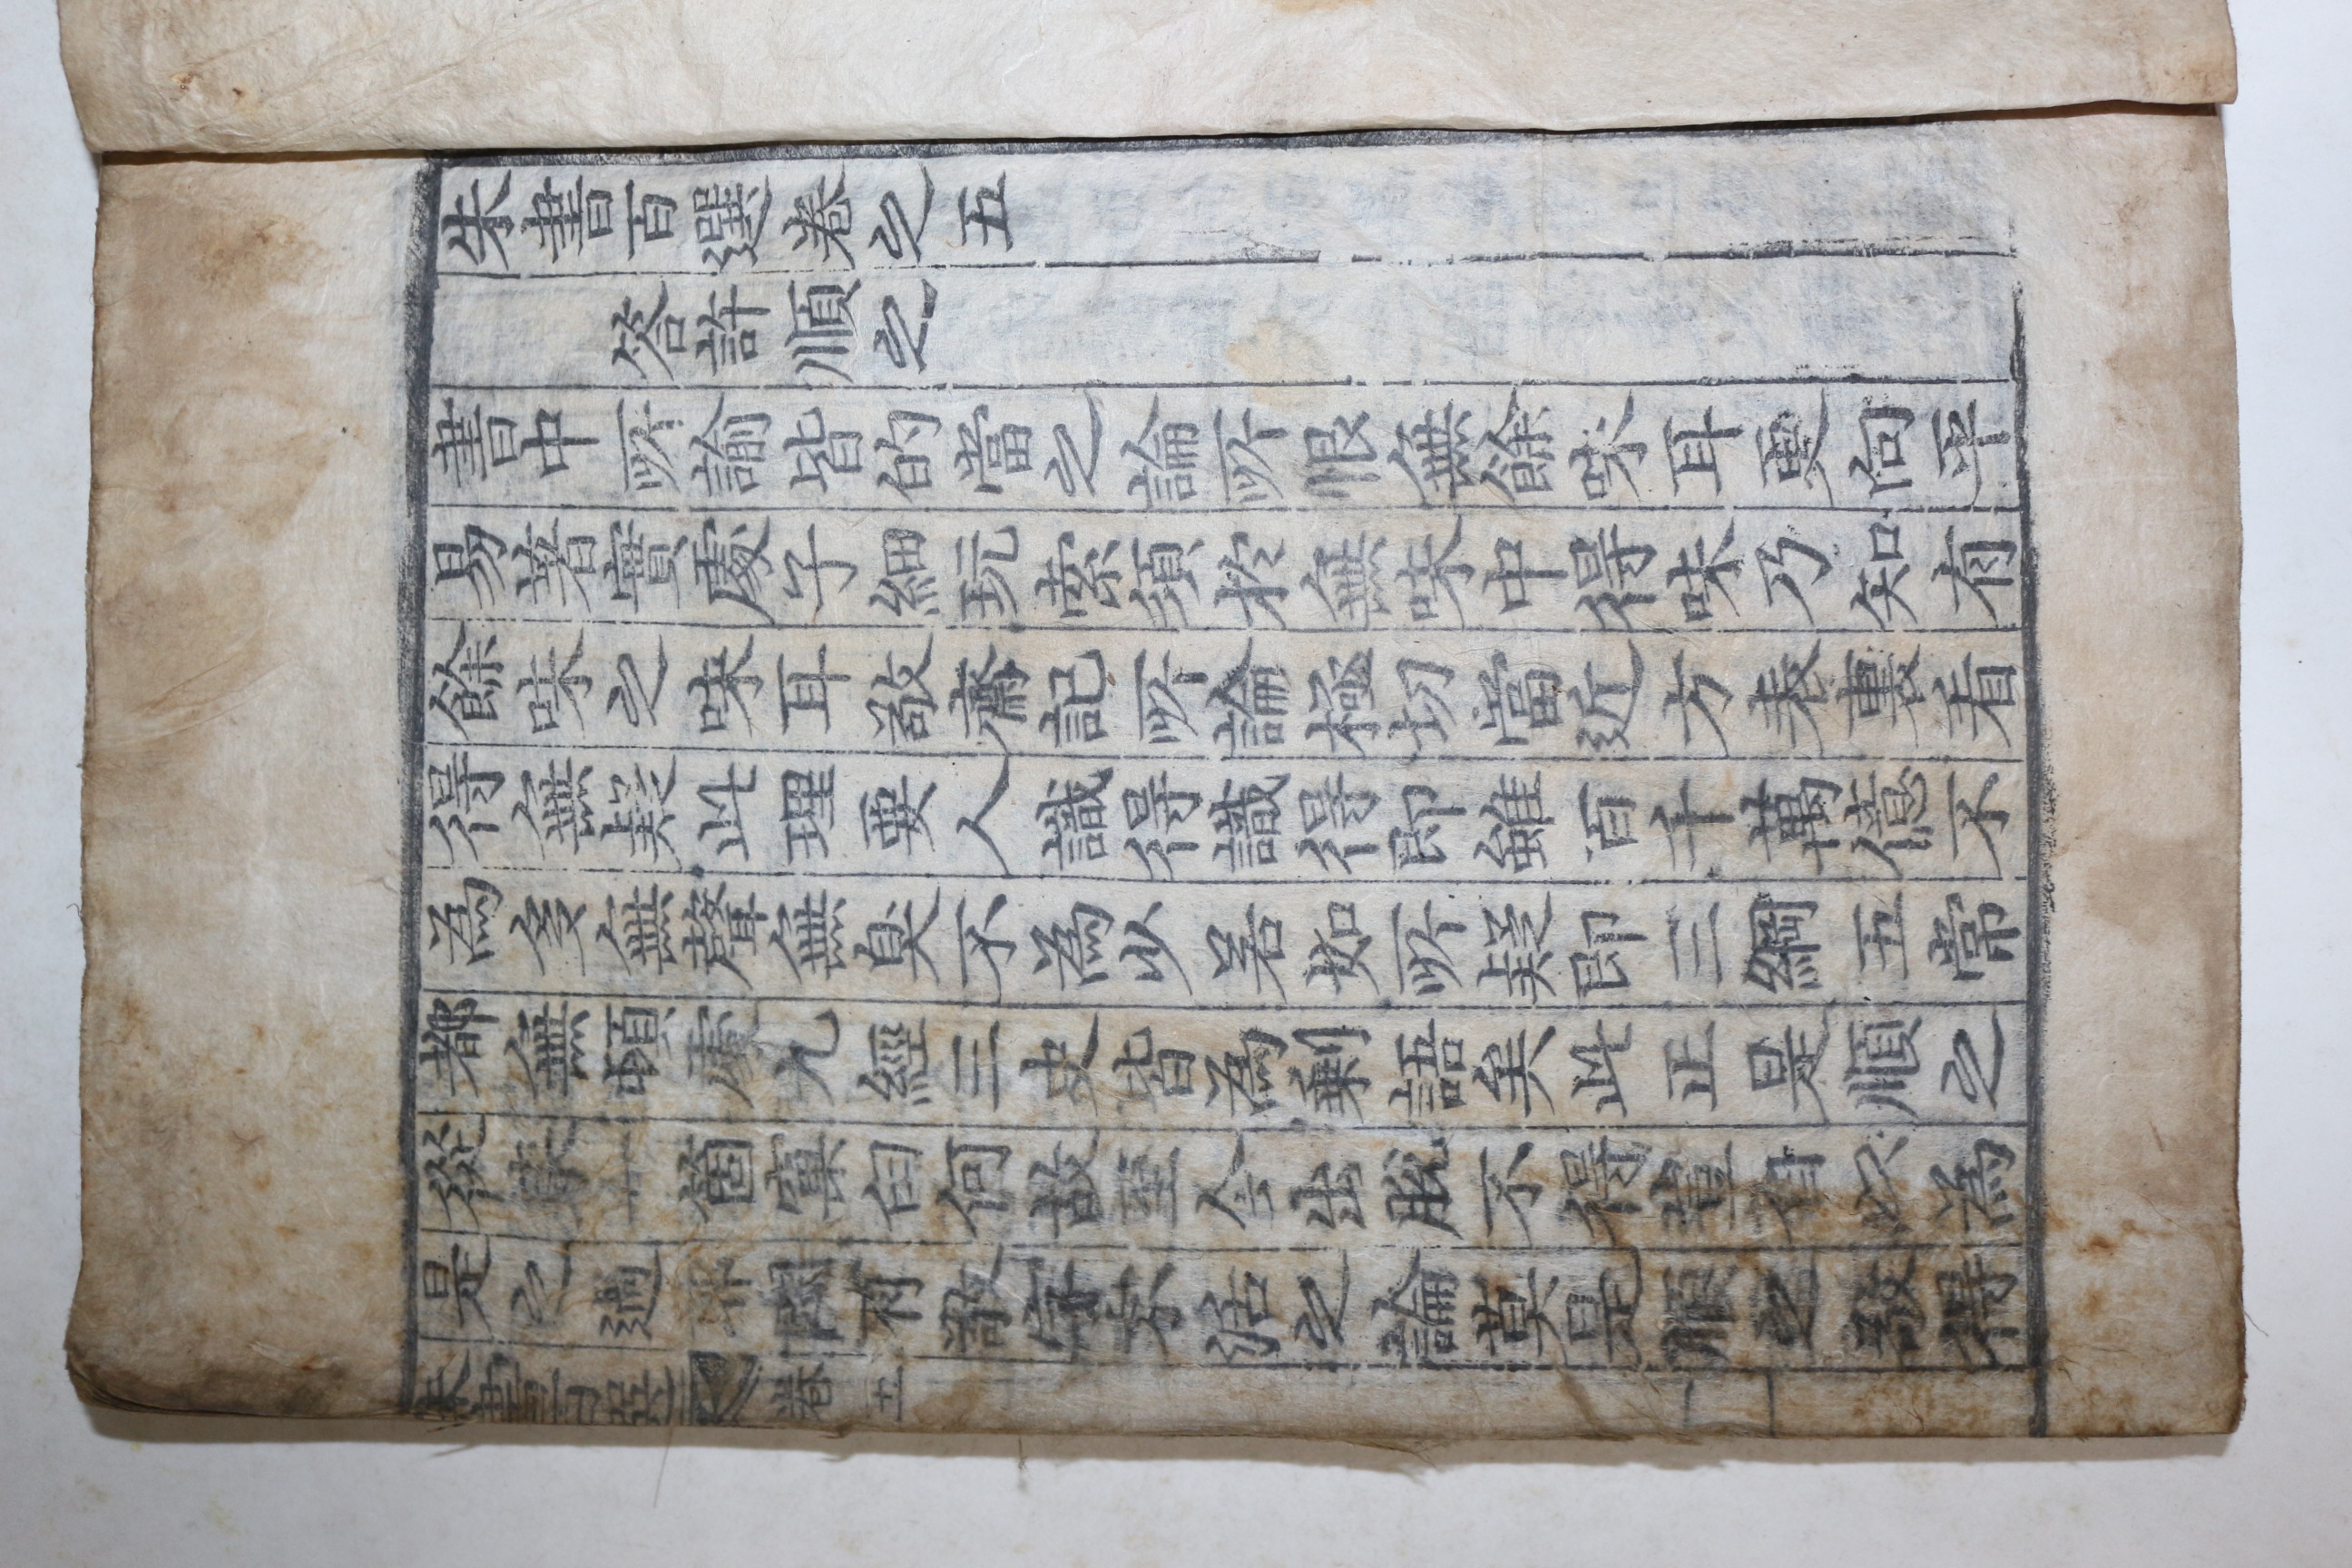 朱書百選卷之五
答許順之
書中所諭皆的當之論所恨無餘味耳更向平
易著實處子細玩索須於無味中得味乃知有
餘味之味耳敬齋記所論極切當近方表裏看
得無疑此理要人識得識得即雖百千萬億不
為多無聲無臭不為少若如所疑即三綱五常
都無頓處九經三史皆為剩語矣此正是順之
從來一箇窠臼何故至今出脫不得豈自以為
是之過聞有敬字不活之論莫是順之敬得
朱書百選 卷五 一